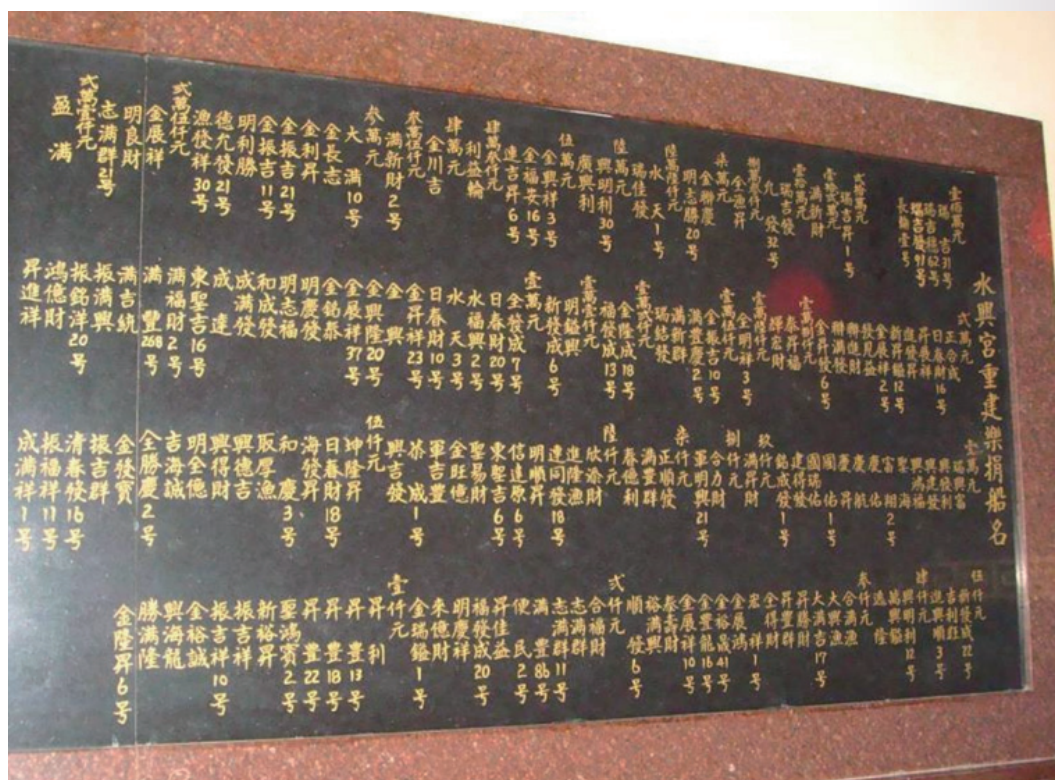 水興宮重建樂捐船名
瑞吉31号
瑞吉德62号
長輪壹号
瑞吉昇1号
滿新財
瑞吉發
九發32号
全漁昇
柒萬元
金聯慶
明志勝20号
陸萬陸仟元
水天1号
陸萬元
瑞佳發
興明利30号
廣興利
伍萬元
金興祥3号
金福安16号
連吉昇6号
肆萬參仟元
利益輪
肆萬元
金川吉
參萬伍仟元
滿新財2号
參萬元
大滿10号
金長志
金利昇
金振吉21号
金振吉11号
明利勝
德允發21号
漁發祥30号
弍萬伍仟元
金展祥
明良財
志滿群21号
弍萬壹仟元
盈滿
弍萬元
正合成
日春財16号
昇展祥
進發昇
新昇鎰12号
金展祥2号
發見益
聯進財
聯滿發
金昇發6号
壹萬捌仟元
泰昇福
輝宏財
壹萬陸仟元
全明祥3号
壹萬伍仟元
金振吉10号
滿豐慶2号
滿新群
瑞銘發
壹萬弍仟元
金隆成18号
福發成13号
壹萬壹仟元
明鎰興
新發成6号
壹萬元
全發成7号
日春財20号
水福興2号
水天3号
日春財10号
金昇祥23号
金興
金興隆20号
金展祥37号
金銘泰
明慶發
明志福
和成發
成滿發
成達
東聖吉16号
滿福財2号
滿豐268号
滿吉統
振滿興
振銘洋20号
鴻億財
昇進祥
壹萬元
瑞興富
興發利
興建發
興鴻福
聖海
富翔2号
慶佑
慶航
慶昇
國佑1号
國瑞佑
玖仟元
銘成發1号
建得發
滿昇財
捌仟元
合力財
軍明興21号
柒仟元
正順發
滿豐群
春億利
陸仟元
欣渝財
進隆漁
連同發18号
明順昇
信達原6号
東聖吉6号
聖易財
金旺億
軍吉豐
恭成1号
興吉發
伍仟元
坤隆昇
日春財18号
海發昇
和慶3号
取厚漁
興德吉
興得財
明全億
吉海誠
全勝慶2号
金發寶
振吉群
清春發16号
振福祥11号
成滿祥1号
伍仟元
新發成22号
吉利群
進興順3号
肆仟元
興明利12号
萬興鎰
進隆
參仟元
合滿漁
大興漁
大滿吉17号
昇勝財
昇豐群
全得財
宏祥1号
金展鴻
金裕晟41号
金豐龍16号
金展祥10号
泰壽財
裕滿興
順發6号
弍仟元
合福財
志滿群
志滿群11号
滿豐86号
便民2号
昇佳益
福發成20号
明慶祥
來億財
金瑞鎰1号
壹仟元
昇利
昇豐13号
昇豐18号
昇豐22号
聖鴻寶2号
新裕昇
振吉祥
振吉祥10号
金裕誠
興海龍
勝滿隆
金隆昇6号